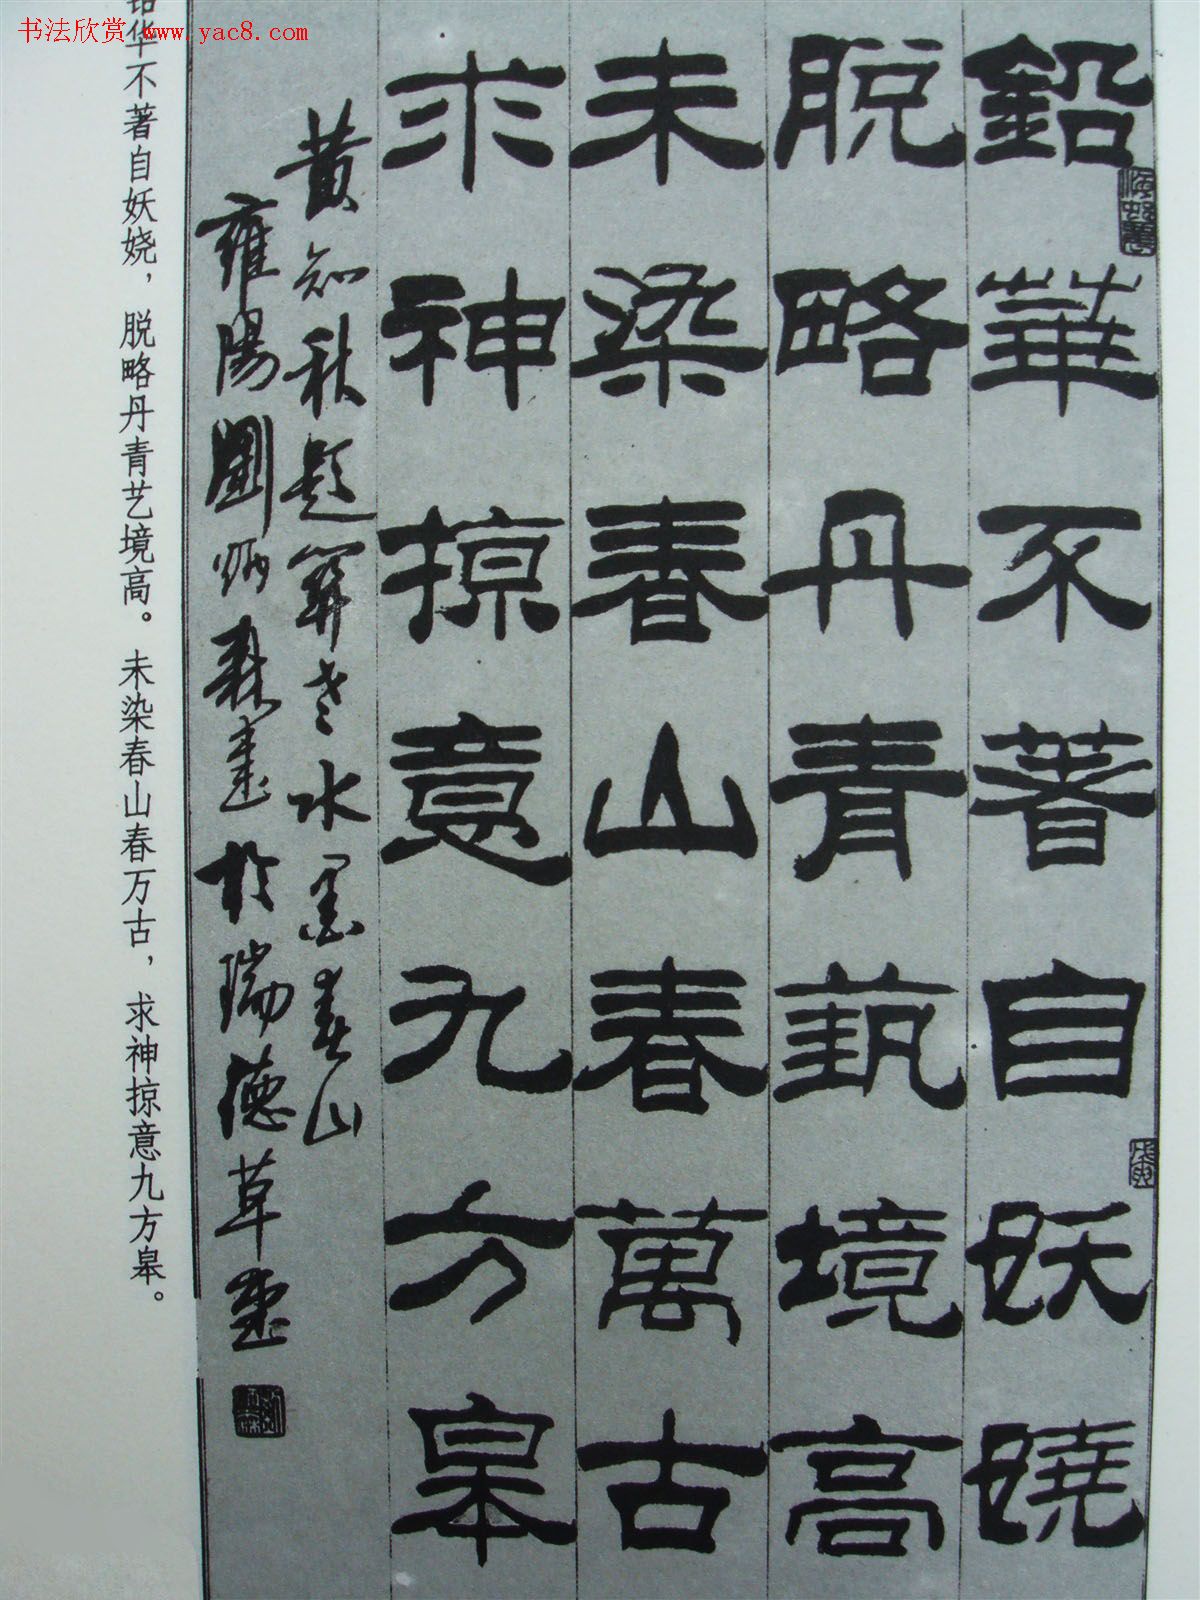 书法欣赏 www.yac8.com
鉛華不著自妖嬈
脫略丹青藝境高
未染春山春萬古
求神掠意九方皋
黄知秋題関老水墨春山
雍陽劉炳森書於瑞德草堂
铅华不著自妖娆，脱略丹青艺境高。未染春山春万古，求神掠意九方皋。